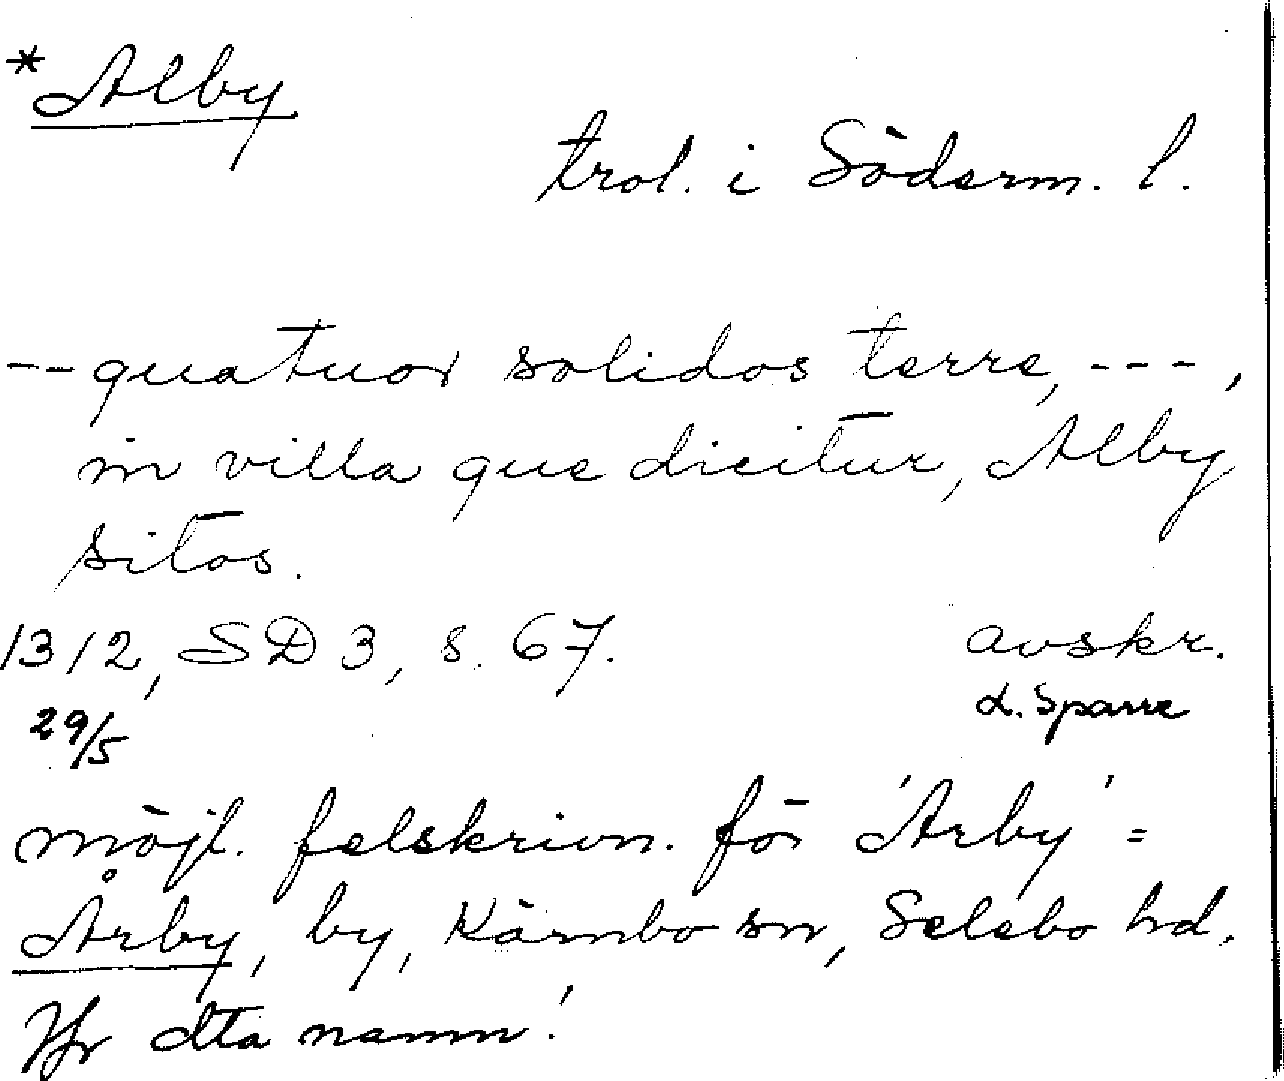 *Alby
trol. i Söderm. l.
-- quatuor solidos terre, ---,
in villa que dicitur, Alby
sitos.
1312, SD 3, s. 67. avskr.
29/5 L. Sparre
möjl. felskrivn. för 'Arby' =
Årby, by, Kärnbo sn, Selebo hd.
Jfr dta namn!